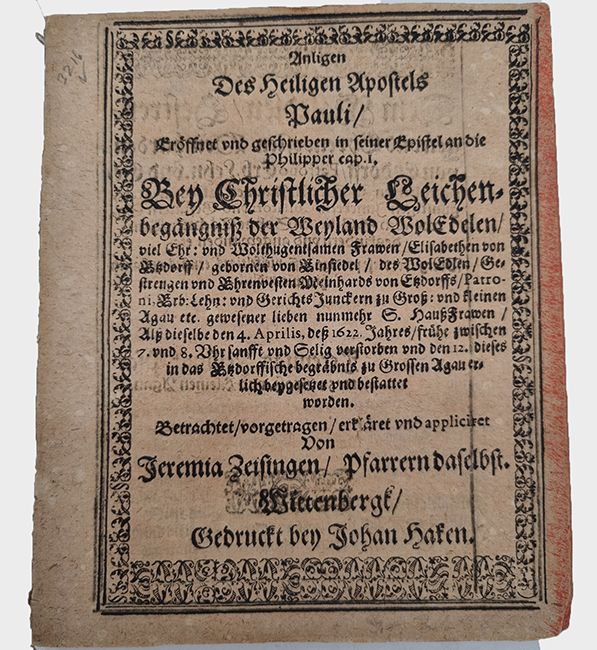 3216
Anligen
Des Heiligen Apostels
Pauli/
Eröffnet vnd geschrieben in seiner Epistel an die
Philipper cap. 1,
Bey Christlicher Leichen-
begängniß der Weyland WolEdelen/
viel Ehr: vnd Wolthugentsamen Frawen/Elisabethen von
Etzdorff/ gebornen von Einsiedel/ des WolEdlen/Ge-
strengen vnd Ehrenvesten Meinhards von Etzdorffs/Patro-
ni. Erb: Lehn: vnd Gerichts Junckern zu Groß: vnd kleinen
Agau etc. gewesener lieben nunmehr S. HaußFrawen/
Alß dieselbe den 4. Aprilis, deß 1622. Jahres/frühe zwischen
7. vnd 8. Vhr sanfft vnd Selig verstorben vnd den 12. dieses
in das Etzdorffische begräbnis zu Grossen Agau er-
lich beygesetzet vnd bestattet
worden.
Betrachtet/vorgetragen/erkläret vnd appliciret
Von
Jeremia Zeisingen/ Pfarrern daselbst.
Wittenbergk/
Gedruckt bey Johan Haken.